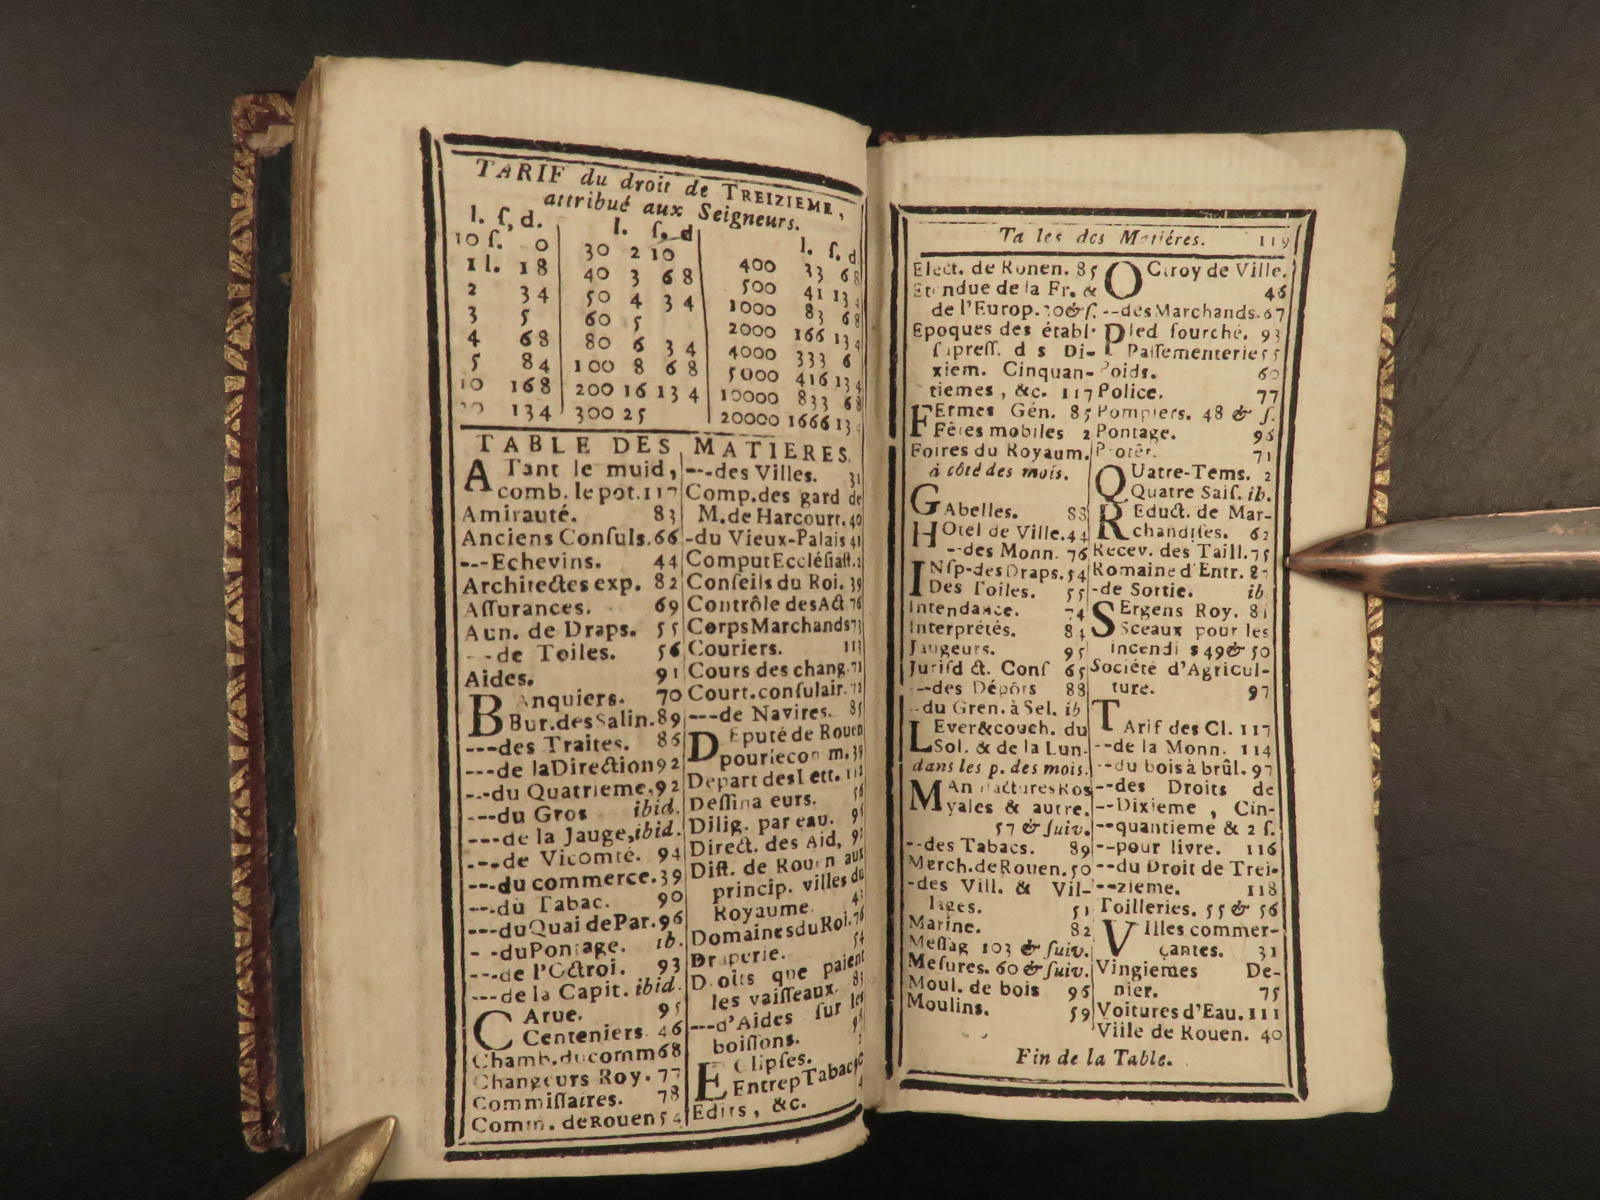 TARIF du droit de TREIZIEME,
attribué aux Seigneurs.
l. ſ, d.
10 ſ. 0
1 l. 1 8
2 3 4
3 5
4 6 8
5 8 4
10 16 8
1 13 4
l. ſ. d
30 2 10
40 3 6 8
50 4 3 4
60 5
80 6 3 4
100 8 6 8
200 16 13 4
300 25
l. ſ. d
400 33 6 8
500 41 13 4
1000 83 6 8
2000 166 13 4
4000 333 6
5000 416 13 4
10000 833 6 8
20000 1666 13 4
TABLE DES MATIERES.
ATant le muid,
comb. le pot. 117
Amirauté. 83
Anciens Conſuls. 66
---Echevins. 44
Architectes exp. 82
Aſſurances. 69
Aun. de Draps. 55
--de Toiles. 56
Aides. 91
BAnquiers. 70
Bur. des Salin. 89
---des Traites. 86
---de la Direction 92
---du Quatrieme. 92
---du Gros ibid.
---de la Jauge, ibid.
---de Vicomté. 94
---du commerce. 39
---du Tabac. 90
---du Quai de Par. 96
--du Pontage. ib.
---de l'Octroi. 93
---de la Capit. ibid.
CArue. 95
Centeniers. 46
Chamb. du comm 68
Changeurs Roy. 77
Commiſſaires. 78
Comm. de Rouen 54
---des Villes. 31
Comp. des gard de
M. de Harcourt. 40
-du Vieux-Palais 41
Comput Eccléſiaſt. 2
Conſeils du Roi. 39
Contrôle des Act. 76
Corps Marchands 73
Couriers. 113
Cours des chang. 71
Court. conſulair. 72
---de Navires. 85
DEputé de Rouen
pour le com m. 39
Depart des Lett. 112
Deſſina eurs. 56
Dilig. par eau. 95
Direct. des Aid, 92
Diſt. de Rouen aux
princip. villes du
Royaume. 43
Domaines du Roi. 76
Draperie. 54
Droits que paient
les vaiſſeaux. 83
---d'Aides ſur les
boiſſons.
EClipſes. 2
Entrep Tabac 90
Edits, &c. 4
Ta les des Matiéres. 119
Elect. de Rouen. 85
Etendue de la Fr. &
de l'Europ. 30 & ſ.
Epoques des établ-
ſupreſſ. d s Di-
xiem. Cinquan-
tiemes, &c. 117
FErmes Gén. 85
Fêtes mobiles 2
Foires du Royaum.
à côté des mois.
GAbelles. 88
HOtel de Ville. 44
--des Monn. 76
INſp-des Draps. 54
Des Toiles. 55
Intendance. 74
Interprétés. 84
Jaugeurs. 95
Juriſd ct. Conſ 65
--des Dépôts 88
--du Gren. à Sel. ib
LEver & couch. du
Sol. & de la Lun-
dans les p. des mois.
MAn factures Ros
yales & autre.
57 & ſuiv.
--des Tabacs. 89
Merch. de Rouen. 50
-des Vill. & Vil-
lages. 51
Marine. 82
Meſſag 103 & ſuiv.
Meſures. 60 & ſuiv.
Moul. de bois 96
Moulins. 59
OCtroy de Ville.
46
--des Marchands. 67
PIed fourché. 93
Paſſementerie 55
Poids. 60
Police. 77
Pompiers. 48 & ſ.
Pontage. 96
Protêt. 71
QUatre-Tems. 2
Quatre Saiſ. ib.
REduct. de Mar-
chandiſes. 62
Recev. des Taill. 75
Romaine d'Entr. 87
-de Sortie. ib
SErgens Roy. 81
Sceaux pour les
incendi s 49 & 50
Société d'Agricul-
ture. 97
TArif des Cl. 117
--de la Monn. 114
--du bois à brûl. 97
--des Droits de
--Dixieme, Cin-
--quantieme & 2 ſ.
--pour livre. 116
--du Droit de Trei-
--zieme. 118
Toilleries. 55 & 56
VIlles commer-
çantes. 31
Vingiemes De-
nier. 75
Voitures d'Eau. 111
Ville de Rouen. 40
Fin de la Table.